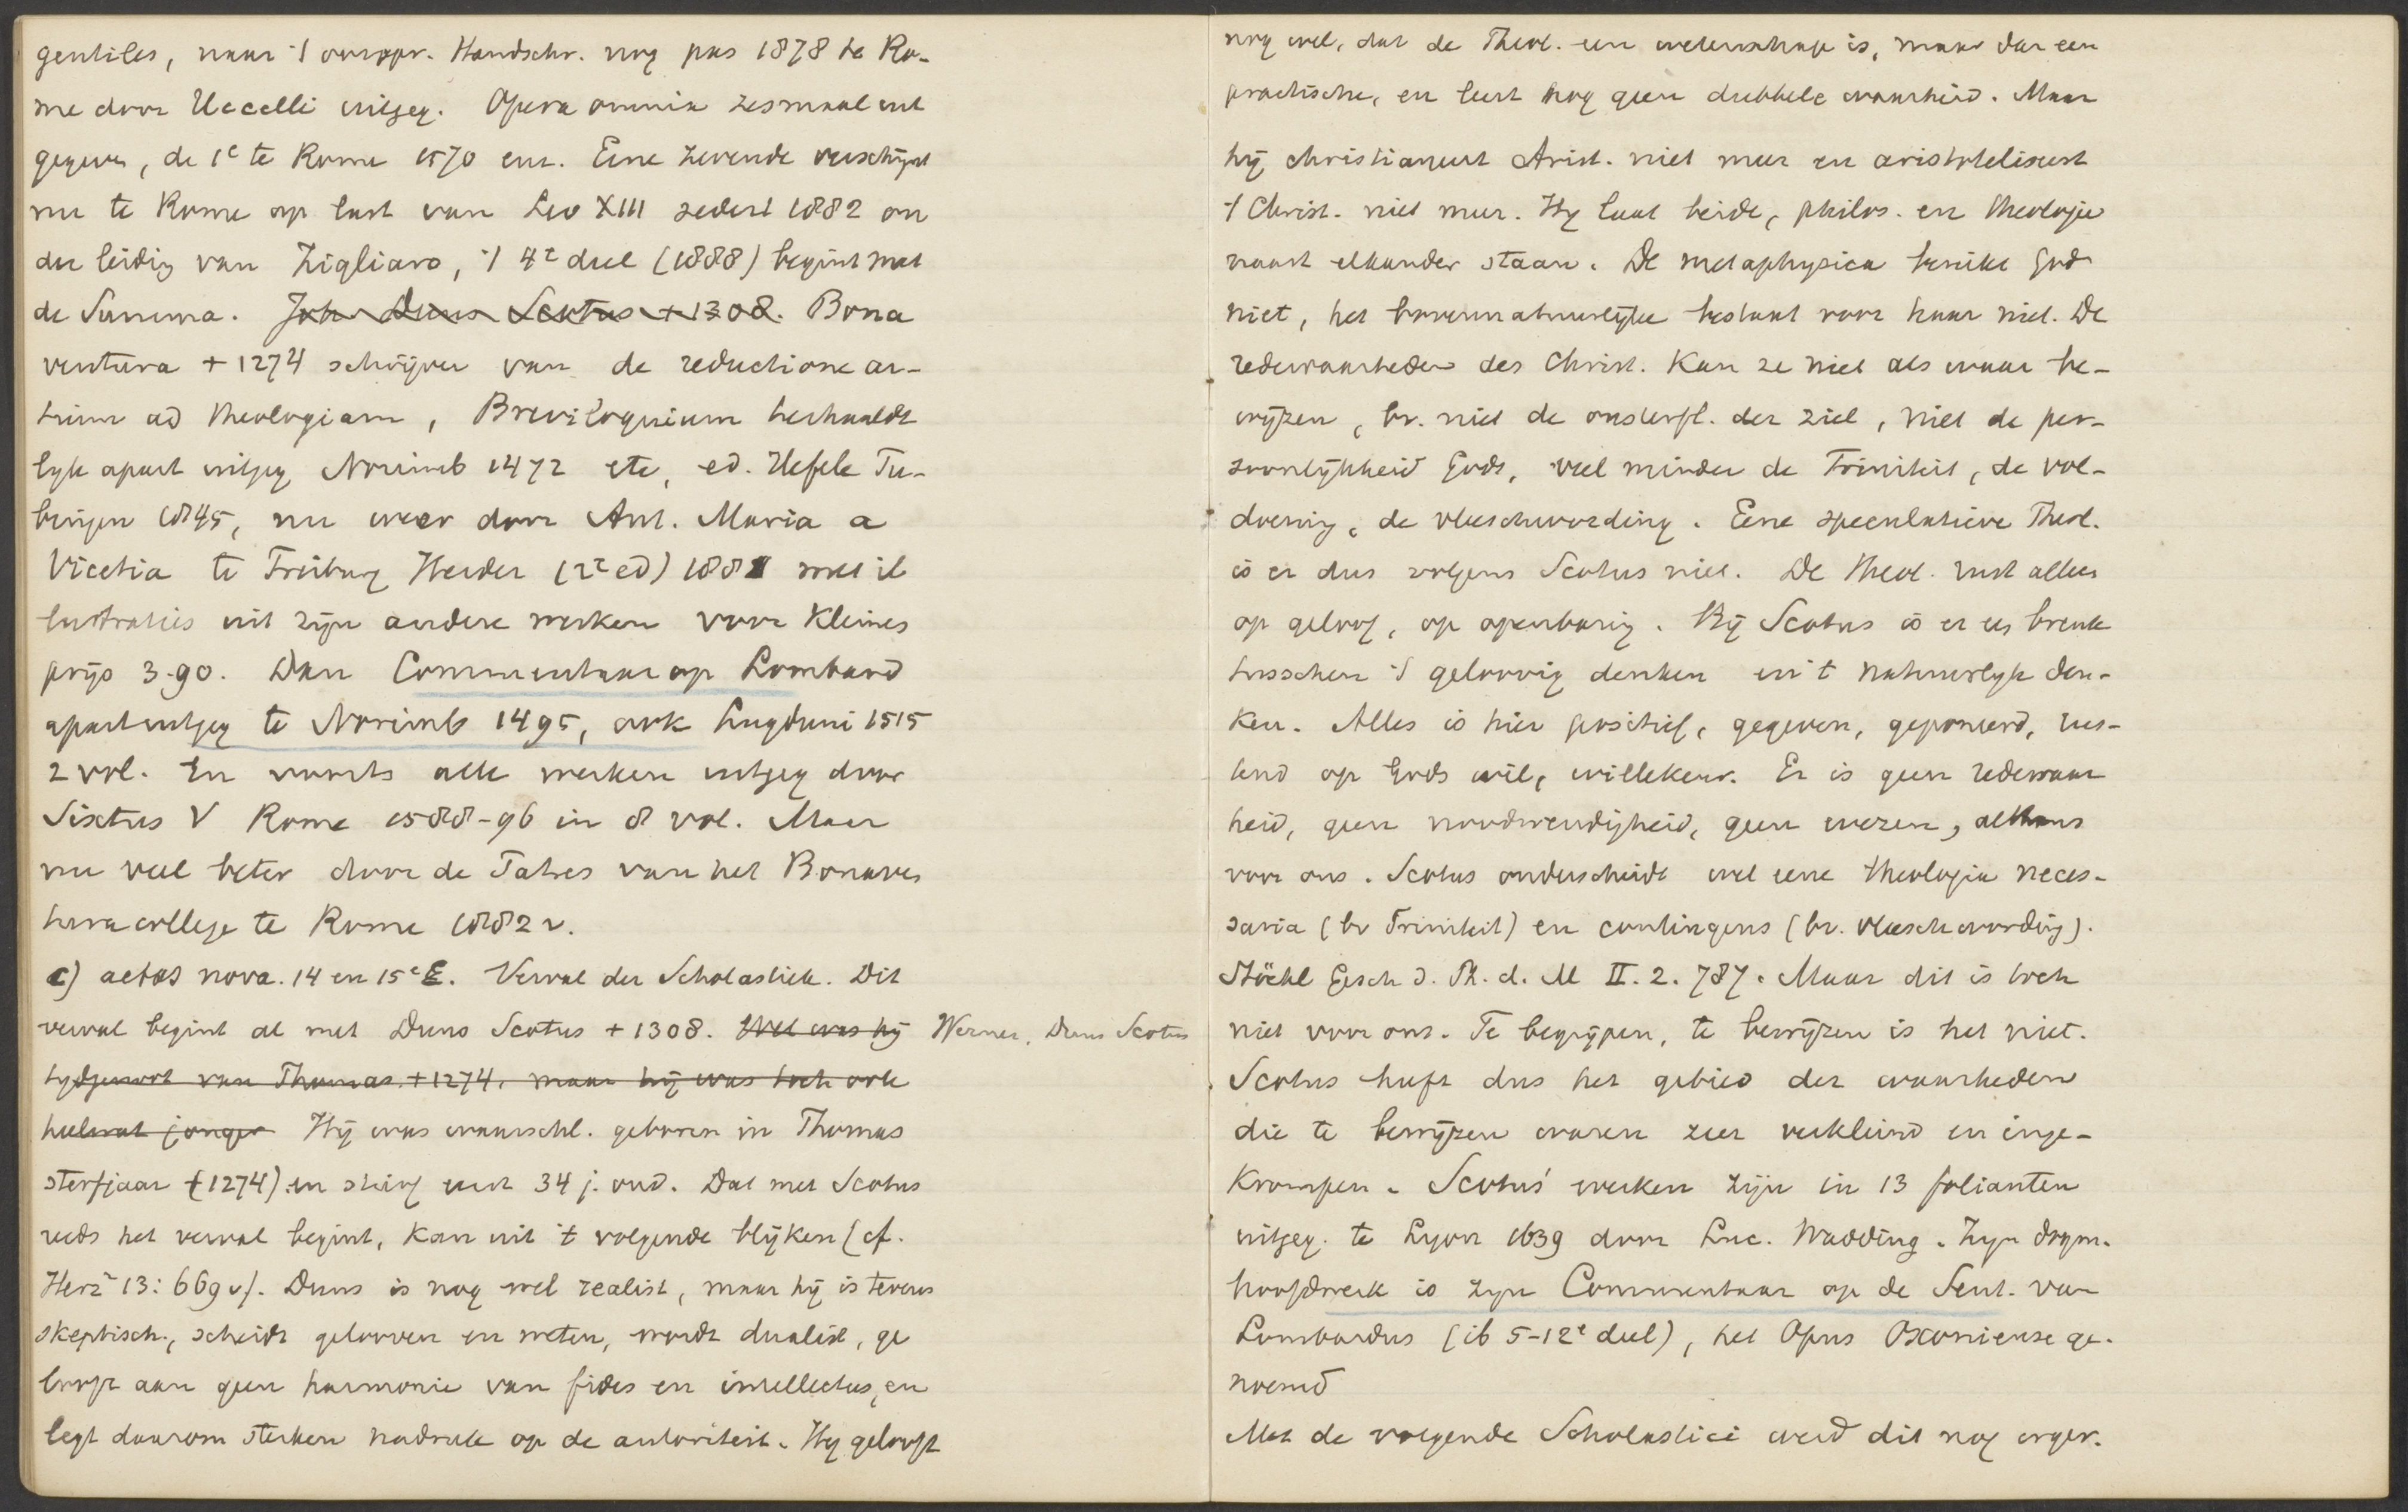 gentiles, naar 't oorspr. Handschr. nog pas 1878 te Ro-
me door Uccelli uitgeg. Opera omnia zesmaal uit
gegeven, de 1e te Rome 1570 enz. Eene zevende verschijnt
nu te Rome op last van Leo XIII sedert 1882 on
der leiding van Zigliaro, 't 4e deel (1888) begint met
de Summa. Joh. Duns Scotus + 1308. Bona
ventura + 1274 schrijver van de reductione ar-
tium ad theologiam, Breviloquium herhaalde
lijk apart uitgeg Norimb 1472 etc, ed. Hefele Tu-
bingen 1845, nu weer door Ant. Maria a
Vicetia te Freiburg Herder (2e ed) 1881 met il
lustraties uit zijn andere werken voor kleines
prijs 3.90. Dan Commentaar op Lombard
apart uitgeg te Norimb 1495, ook Lugduni 1515
2 vol. En voorts alle werken uitgeg door
Sixtus V Rome 1588-96 in 8 vol. Maar
nu veel beter door de Patres van het Bonaven
tura college te Rome 1882 v.
c) aetas nova. 14 en 15e E. Verval der Scholastiek. Dit
verval begint al met Duns Scotus + 1308. Wel was hij
Werner, Duns Scotus
tijdgenoot van Thomas + 1274, maar hij was toch ook
heelwat jonger Hij was waarschl. geboren in Thomas
sterfjaar (1274) en stierf eerst 34 j. oud. Dat met Scotus
reeds het verval begint, kan uit 't volgende blijken (cf.
Herz2 13: 669 v). Duns is nog wel realist, maar hij is tevens
skeptisch, scheidt gelooven en weten, wordt dualist, ge
looft aan geen harmonie van fides en intellectus, en
legt daarom sterken nadruk op de autoriteit. Hij gelooft
nog wel, dat de Theol. een wetenschap is, maar dan een
practische, en leert nog geen dubbele waarheid. Maar
hij christianiseert Arist. niet meer en aristoteliseert
't Christ. niet meer. Hij laat beide, philos. en theologie
naast elkander staan. De metaphysica bereikt God
niet, het bovennatuurlijke bestaat voor haar niet. De
redewaarheden des Christ. kan ze niet als waar be-
wijzen, bv. niet de onsterfl. der ziel, niet de per-
soonlijkheid Gods, veel minder de Triniteit, de vol-
doening, de vleeschwording. Eene speculatieve Theol.
is er dus volgens Scotus niet. De theol. rust alleen
op geloof, op openbaring. Bij Scotus is er een breuk
tusschen 't geloovig denken en 't natuurlijk den-
ken. Alles is hier positief, gegeven, geponeerd, rus-
tend op Gods wil, willekeur. Er is geen redewaar
heid, geen noodwendigheid, geen wezen, althans
voor ons. Scotus onderscheidt wel eene theologia neces-
saria (bv Triniteit) en contingens (bv. vleeschwording).
Stöckl Gesch d. Ph. d. M II. 2. 787. Maar dit is toch
niet voor ons. Te begrijpen, te bewijzen is het niet.
Scotus heeft dus het gebied der waarheden
die te bewijzen waren zeer verkleind en inge-
krompen. Scotus' werken zijn in 13 folianten
uitgeg. te Lyon 1639 door Luc. Wadding. Zijn dogm.
hoofdwerk is zijn Commentaar op de Sent. van
Lombardus (ib 5-12e deel), het Opus Oxoniense ge-
noemd
Met de volgende Scholastici werd dit nog erger.